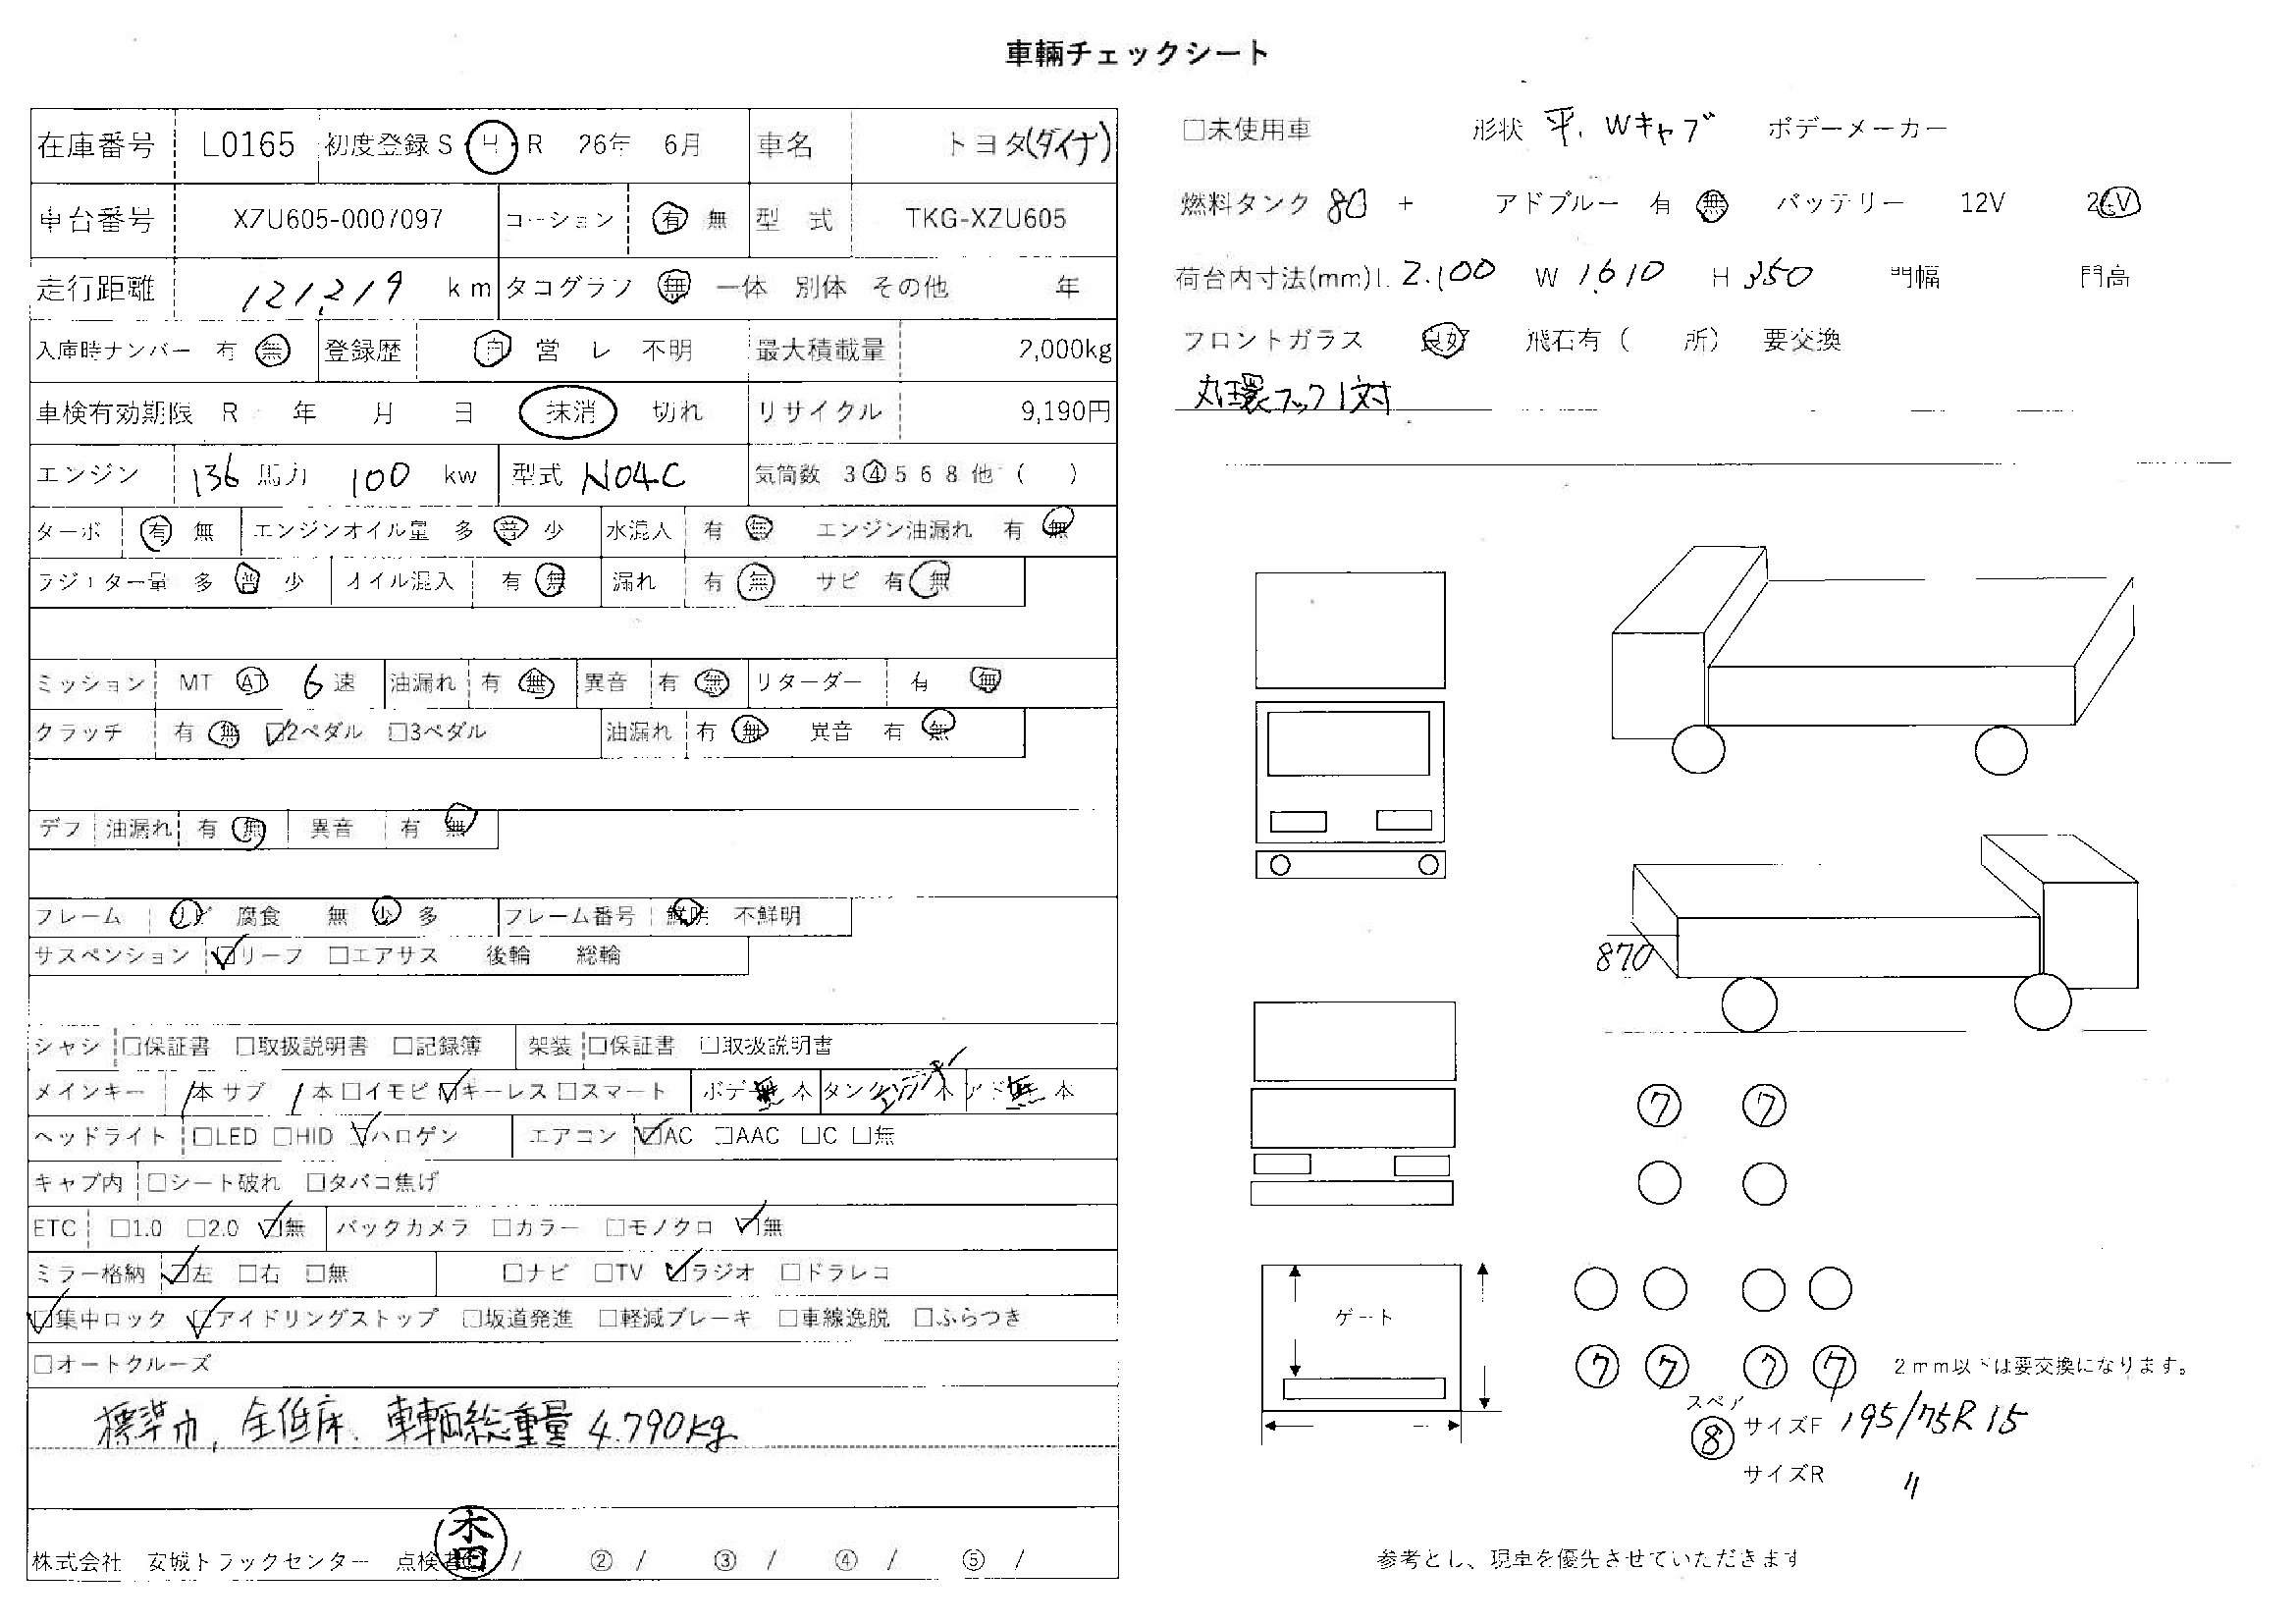 車輛チェックシート
在庫番号 L0165 初度登録 S H R 26年 6月 車名 トヨタ(ダイナ)
車台番号 XZU605-0007097 コーション 有 無 型 式 TKG-XZU605
走行距離 121,219 km タコグラフ 無 一体 別体 その他 年
入庫時ナンバー 有 無 登録歴 自 営 レ 不明 最大積載量 2,000kg
車検有効期限 R 年 月 日 抹消 切れ リサイクル 9,190円
エンジン 136 馬力 100 kw 型式 N04C 気筒数 3 4 5 6 8 他 ( )
ターボ 有 無 エンジンオイル量 多 普 少 水混入 有 無 エンジン油漏れ 有 無
ラジエター量 多 普 少 オイル混入 有 無 漏れ 有 無 サビ 有 無
ミッション MT AT 6 速 油漏れ 有 無 異音 有 無 リターダー 有 無
クラッチ 有 無 ☑2ペダル □3ペダル 油漏れ 有 無 異音 有 無
デフ 油漏れ 有 無 異音 有 無
フレーム サビ 腐食 無 少 多 フレーム番号 鮮明 不鮮明
サスペンション ☑リーフ □エアサス 後輪 総輪
シャシ □保証書 □取扱説明書 □記録簿 架装 □保証書 □取扱説明書
メインキー 1本 サブ 1本 □イモビ ☑キーレス □スマート ボデー 無 本 タンク エンジンキー 本 アド 無 本
ヘッドライト □LED □HID ☑ハロゲン エアコン ☑AC □AAC □C □無
キャブ内 □シート破れ □タバコ焦げ
ETC □1.0 □2.0 ☑無 バックカメラ □カラー □モノクロ ☑無
ミラー格納 ☑左 □右 □無 □ナビ □TV ☑ラジオ □ドラレコ
☑集中ロック ☑アイドリングストップ □坂道発進 □軽減ブレーキ □車線逸脱 □ふらつき
□オートクルーズ
標準巾、全低床、車輌総重量 4.790kg
株式会社 安城トラックセンター 点検者 木田 / ② / ③ / ④ / ⑤ /
□未使用車 形状 平、Wキャブ ボデーメーカー
燃料タンク 80 + アドブルー 有 無 バッテリー 12V 24V
荷台内寸法(mm)L 2.100 W 1.610 H 350 門幅 門高
フロントガラス 良好 飛石有 ( 所) 要交換
丸環フック1対
870
7 7
ゲート
7 7 7 7 2mm以下は要交換になります。
スペア
8 サイズF 195/75R15
サイズR 〃
参考とし、現車を優先させていただきます